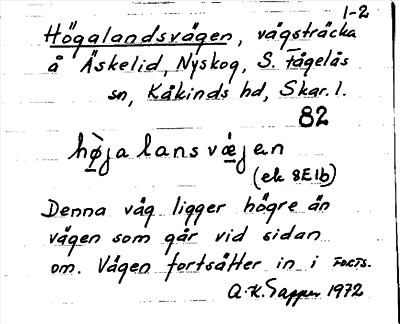 1-2
Högalandsvägen, vägsträcka
å Äskelid, Nyskog, S. Fågelås
sn, Kåkinds hd, Skar. l.
82
hø̀jalansvǽjen
(ek 8E1b)
Denna väg ligger högre än
vägen som går vid sidan
om. Vägen fortsätter in i FORTS.
A.K. Sapper 1972